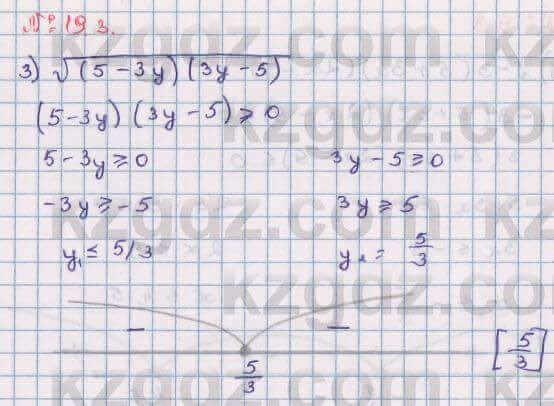 № 19.3.
3) √(5-3y)(3y-5)
(5-3y)(3y-5) ⩾ 0
5-3y ⩾ 0 3y-5 ⩾ 0
-3y ⩾ -5 3y ⩾ 5
y₁ ≤ 5/3 y₂ = 5/3
– –
5/3 [5/3]
kzgdz.com